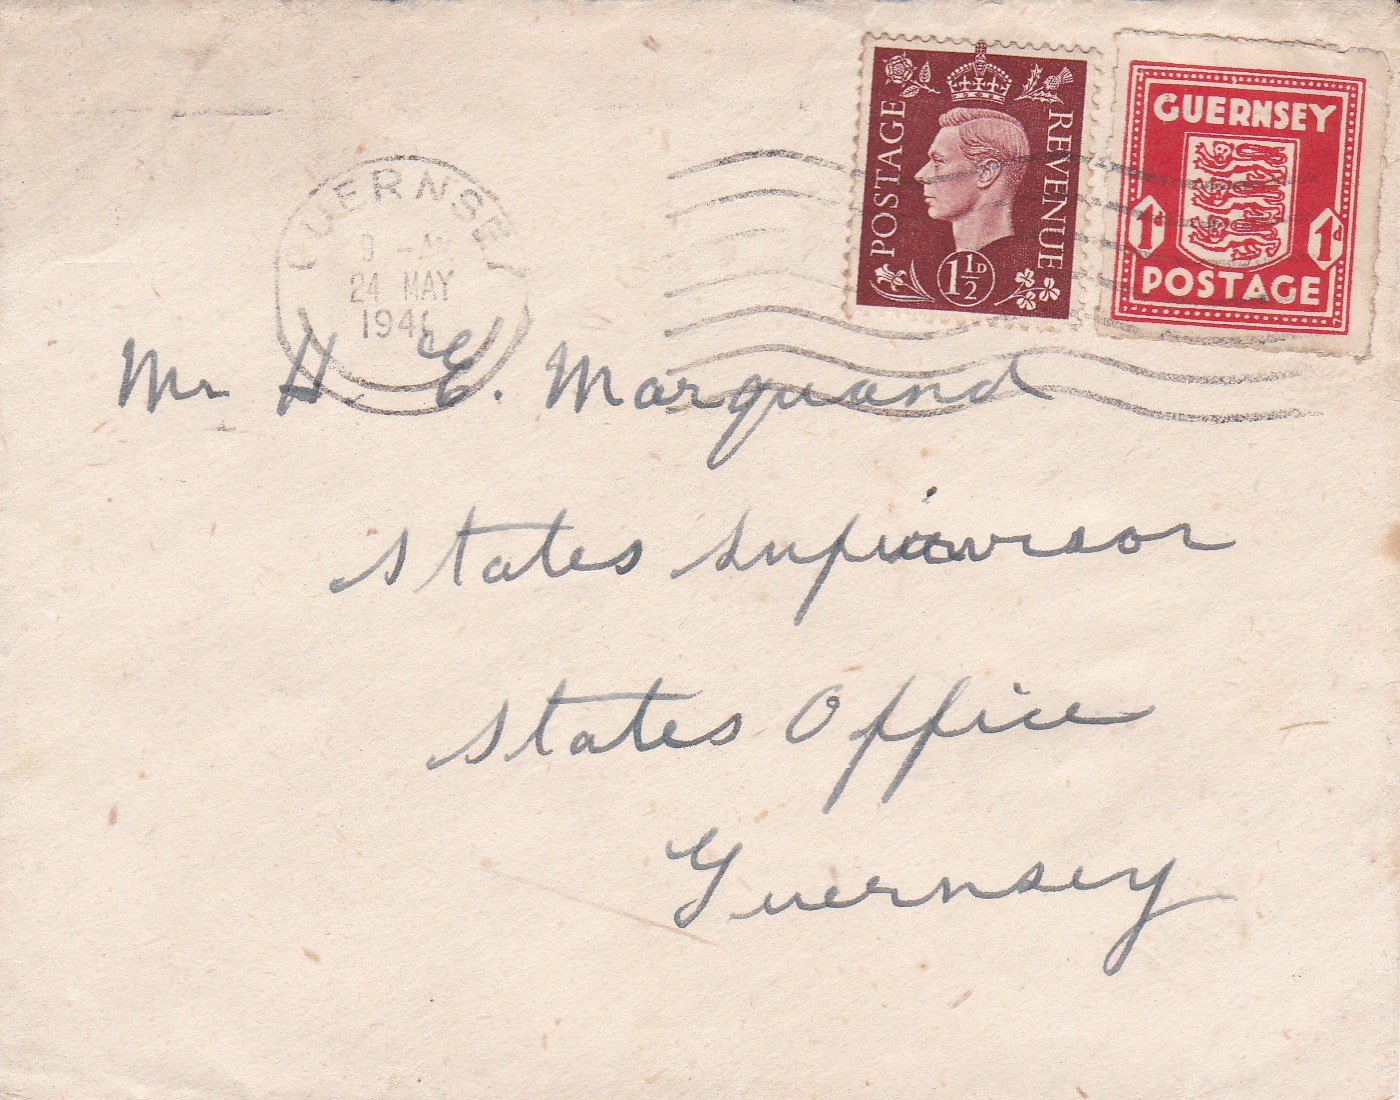 POSTAGE
REVENUE
1½D
GUERNSEY
1d 1d
POSTAGE
GUERNSEY
24 MAY
Mr H. E. Marquand
States Supiervisor
States Office
Guernsey